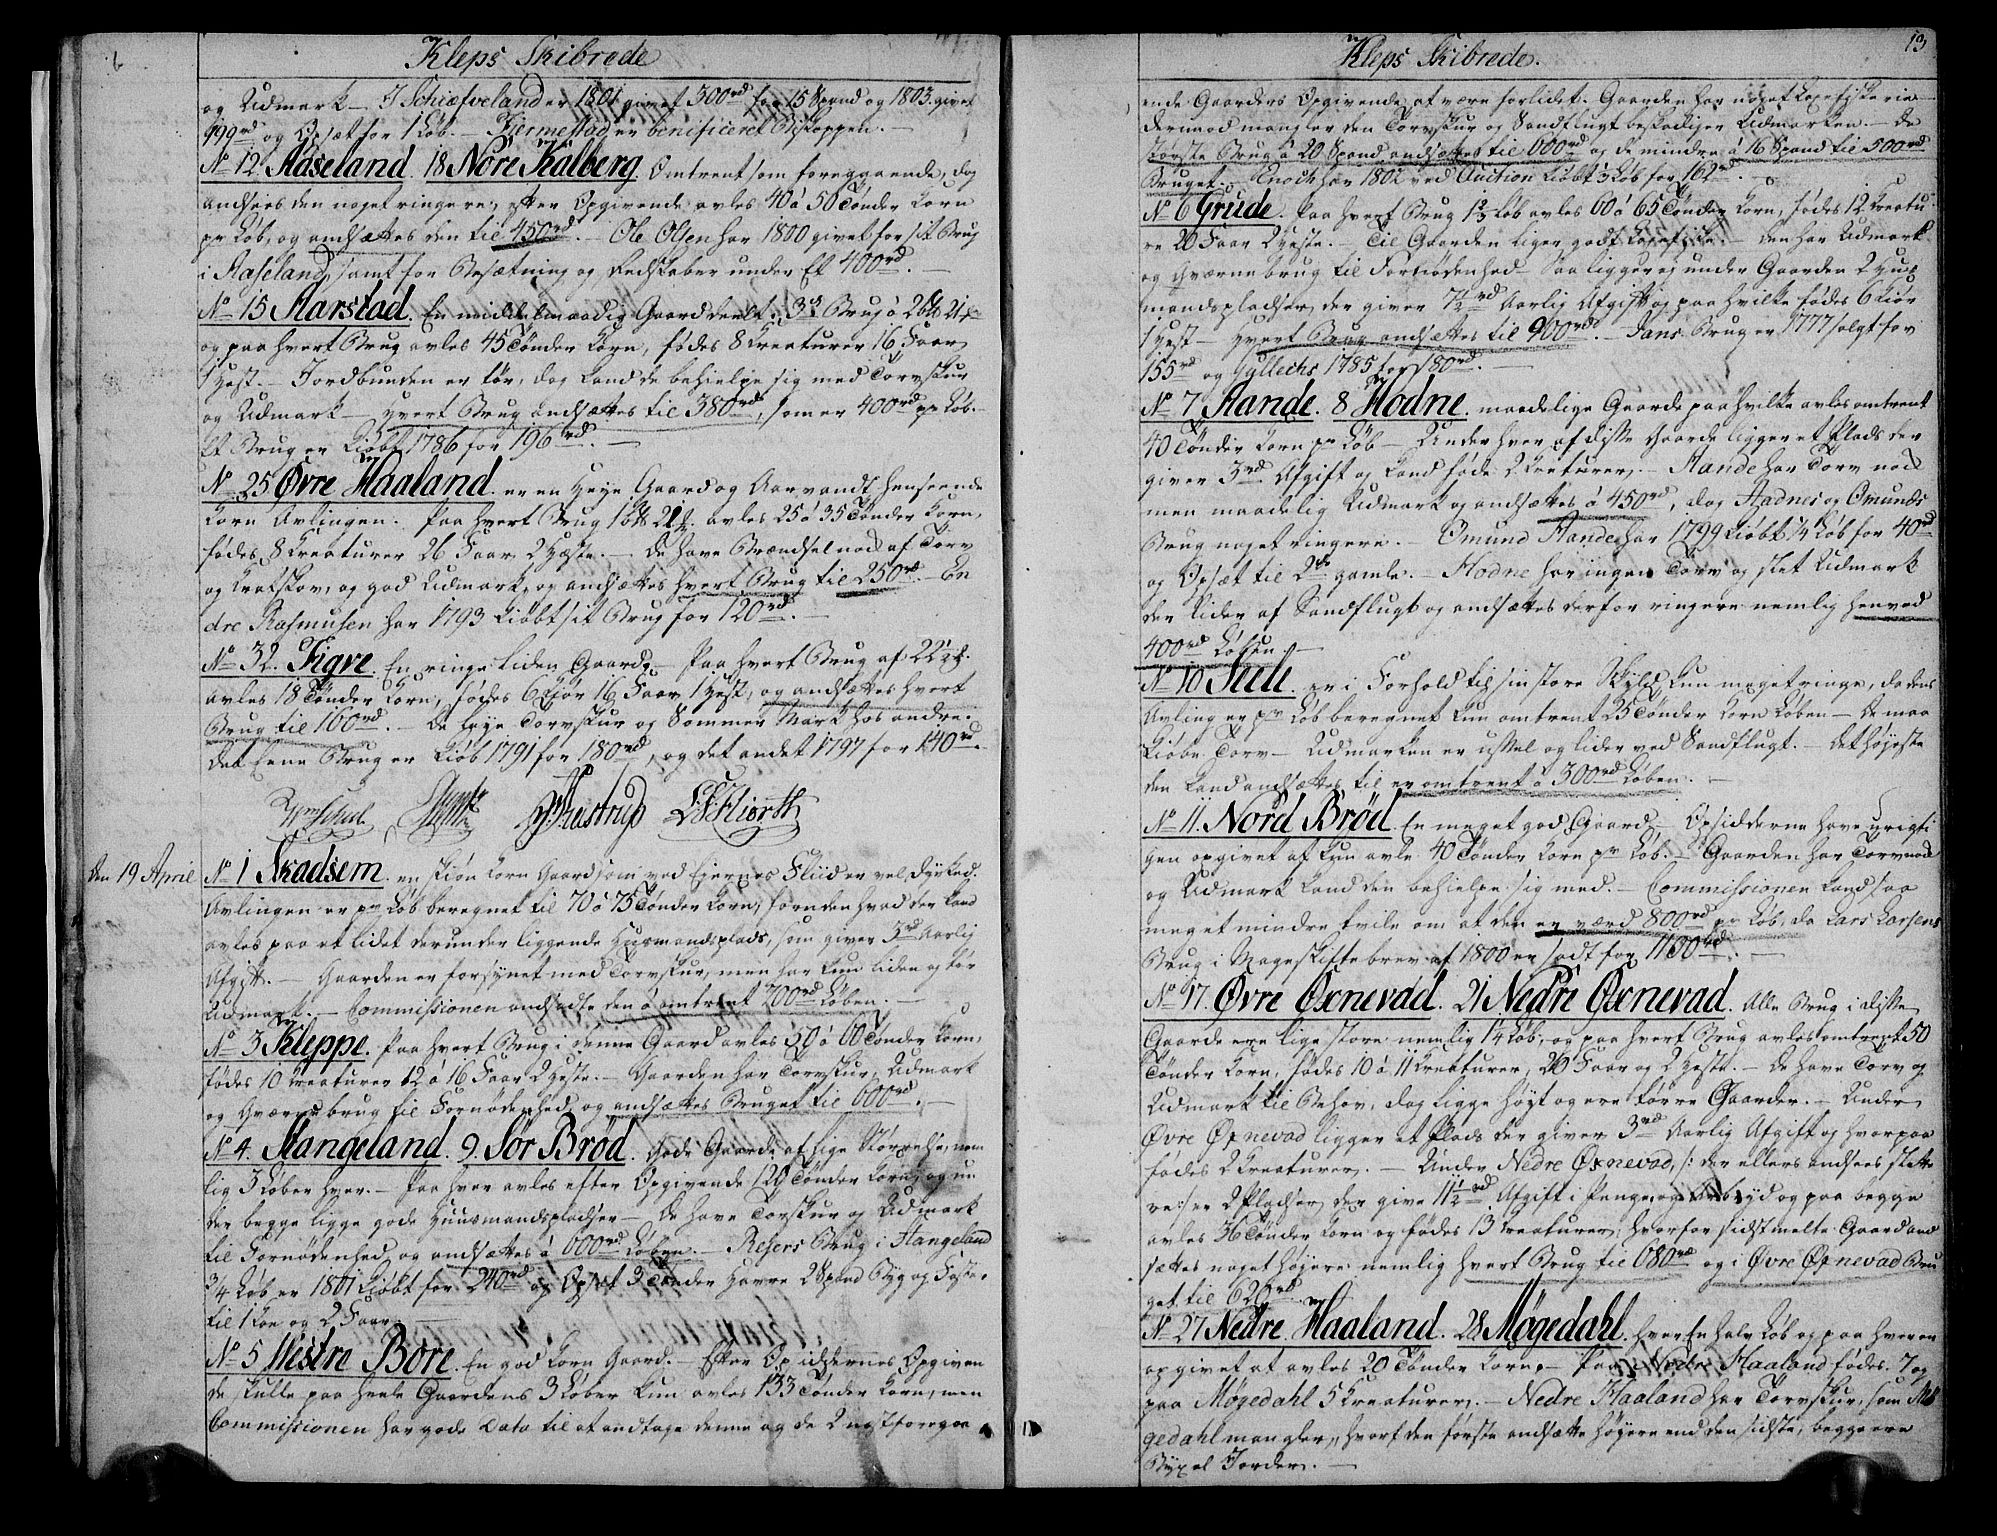 Kleps Skibrede
og Udmark – I Schiefveland er 1801 givet 300rd for 15 Spand og 1803 givet
999rd og Opsæt for 1 Løb. – Tiermestad er benificeret Biskoppen. –
No 12 Haseland. 18 Nore Kalberg. Omtrent som foregaaende, dog
andsees den noget ringere, efter Opgivende avles 40 á 50 Tønder Korn
pr Løb, og andsættes den til 450rd. – Ole Olsen har 1800 givet for sit Brug
i Haseland, samt for Besætning og Redskaber under Et 400rd. –
No 15 Harstad. En middelmaadig Gaard deelt i 3de Brug á
og paa hvert Brug avles 45 Tønder Korn, fødes 8 Kreaturer 16 Faar
1 Hest. – Jordbunden er tør, dog kand de behielpe sig med Torvskur
og Udmark – hvert Brug andsættes til 380rd, som er 400rd pr Løb. –
Et Brug er kiøbt 1786 for 196rd. –
No 25 Øvre Haaland. er en Høye Gaard og Aarvandt henseende
Korn Avlingen. Paa hvert Brug avles 25 á 35 Tønder Korn,
fødes 8 Kreaturer 26 Faar 2 Hæste. – De have Brændsel nok af Torv
og Kratskov, og god Udmark, og andsættes hvert Brug til 250rd. – En
dre Rasmusen har 1793 kiøbt sit Brug for 120rd. –
No 32. Tigre. En ringe liden Gaard. – Paa hvert Brug af
avles 18 Tønder Korn, fødes 6 Kiør 16 Faar 1 Hest, og andsættes hvert
Brug til 160rd. – De Leye Torvskur og Sommer Mark hos andre.
Det Eene Brug er kiøb 1791 for 180rd, og det andet 1797 for 140rd.
Fiorth
Den 19 April
No 1 Skadsem. en skiøn Korn Gaard som ved Eiernes Fliid er vel dyrked.
Avlingen er pr Løb beregnet til 70 á 75 Tønder Korn, foruden hvad der kand
avles paa et lidet derunder liggende Huusmandsplads, som giver 3rd Aarlig
Afgift. – Gaarden er forsynet med Torvskur, men har kun liden og tør
Udmark. – Commissionen andsadte den á omtrent 700rd Løben. –
No 3 Kleppe. Paa hvert Brug i denne Gaard avles 50 á 60 Tønder Korn,
fødes 10 Kreaturer 12 á 16 Faar 2 Heste. – Gaarden har Torvskur, Udmark
og Qværnebrug til Fornødenhed og andsættes Bruget til 600rd. –
No 4. Stangeland. 9. Sør Brød. Gode Gaarde af lige Størrelse, nem
lig 3 Løber hver. – Paa hver avles efter Opgivende 120 Tønder Korn, og un
der begge ligge gode Huusmandspladser – De have Torvskur og Udmark
til Fornødenhed og andsættes á 600rd Løben. – Rejers Brug i Stangeland
3/4 Løb er 1801 kiøbt for 240rd og Opsæt 3 Tønder Havre 2 Spand Byg og Føde
til 1 Koe og 2 Faar. –
No 5 Westre Bore. En god Korn Gaard. – Efter Opsiddernes Opgiven
de skulle paa heele Gaardens 3 Løber kun avles 133 Tønder Korn, men
Commissionen har gode Data til at andtage denne og de 2 næst foregaa
13
Kleps Skibrede.
ende Gaarders Opgivende at være forlidet. Gaarden har noget Laxefiskerie
derimod mangler den Torvskur og Sandflugt beskadiger Udmarken. – De
største Brug á 20 Spand andsættes til 600rd og de mindre á 16 Spand til 500rd
Bruget. – Enoch har 1802 ved Auction kiøbt 3 Løb for 162rd. –
No 6 Grude. Paa hvert Brug Løb avles 60 á 65 Tønder Korn, fødes 12 Kreatu
re 20 Faar 2 Heste. – Til Gaarden ligger godt Laxefiske. – Den har Udmark
og Qværnebrug til Fornødenhed – Saa ligger og under Gaarden 2 Huus
mandspladser, der giver 7½rd Aarlig Afgift og paa hvilke fødes 6 Kiør
1 Hest – Hvert Brug andsættes til 900rd. – Jans Brug er 1777 solgt for
155rd og Gullechs 1785 for 180rd. –
No 7. Aande. 8 Hodne. maadelige Gaarde paa hvilke avles omtrent
40 Tønder Korn pr Løb – Under hver af disse Gaarde ligger et Plads der
giver 3rd Afgift og kand føde 2 Kreaturer. – Aande har Torv nok
men maadelig Udmark og andsættes á 450rd, dog Aadnes og Omunds
Brug noget ringere. – Omund Aande har 1799 kiøbt ¼ Løb for 40rd
og Opsæt til 2de gamle. – Hodne har ingen Torv og slet Udmark
der lider af Sandflugt og andsættes derfor ringere nemlig henved
400rd Løben. –
No 10 Seele. er i Forhold til sin store Skyld kun meget ringe, da dens
Avling er pr Løb beregnet kun omtrent 25 Tønder Korn Løben – De maa
kiøbe Torv – Udmarken er ussel og lider ved Sandflugt. – Det højeste
den kand andsættes til er omtrent á 300rd Løben. –
No 11. Nord Brød. En meget god Gaard – Opsidderne have urigti
gen opgivet at kun avle 40 Tønder Korn pr Løb. – Gaarden har Torv nok
og Udmark kand den behielpe sig med. – Commissionen kand saa
meget mindre tvile om at den er værd 800rd pr Løb, da Lars Larsens
Brug i Mageskiftebrev af 1800 er sadt for 1130rd. –
No 17. Øvre Øxnevad. 21 Nedre Øxnevad. Alle Brug i disse
Gaarde ere lige store nemlig 1¼ Løb, og paa hvert Brug avles omtrent 50
Tønder Korn, fødes 10 á 11 Kreaturer, 20 Faar og 2 Heste. – De have Torv og
Udmark til Behov, dog ligge høyt og ere tørre Gaarder. – Under
Øvre Øxnevad ligger et Plads der giver 3rd Aarlig Afgift og hvorpaa
fødes 2 Kreaturer. – Under Nedre Øxnevad, /: der ellers andsees slette
re :/ er 2 Pladser, der give 11½rd Afgift i Penge, og Arbeyd og paa begge
avles 36 Tønder Korn og fødes 13 Kreaturer, hvorfor sidstmelte Gaard and
sættes noget højere nemlig hvert Brug til 680rd og i Øvre Øxnevad Bru
get til 620rd.
No 27 Nedre Haaland. 28 Møgedahl. hver En halv Løb og paa hver er
opgivet at avles 20 Tønder Korn. – Paa Nedre Haaland fødes 7 og
paa Møgedahl 5 Kreaturer. – Nedre Haaland har Torvskur, som Mø
gedahl mangler, hvorfor den første andsætte højere end den sidste, begge ere
Byxel Jorder. –